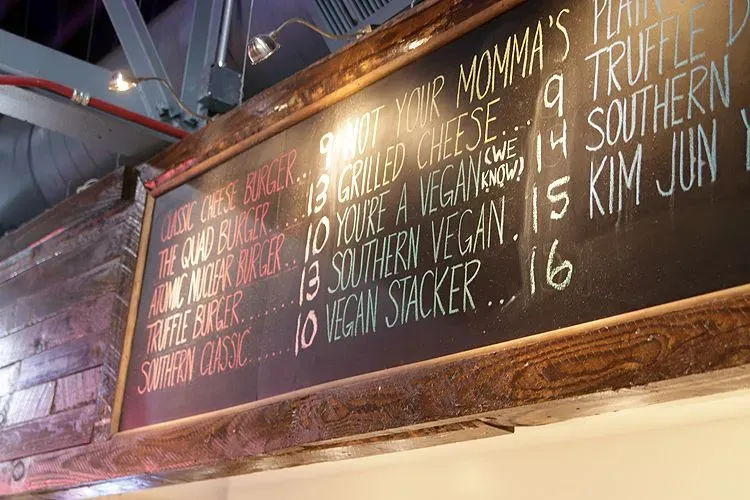 CLASSIC CHEESE BURGER... 9
THE QUAD BURGER....... 13
ATOMIC NUCLEAR BURGER... 10
TRUFFLE BURGER......... 13
SOUTHERN CLASSIC...... 10
NOT YOUR MOMMA'S
GRILLED CHEESE... 9
YOU'RE A VEGAN (WE KNOW) 14
SOUTHERN VEGAN. 15
VEGAN STACKER... 16
PLAIN
TRUFFLE
SOUTHERN
KIM JUN